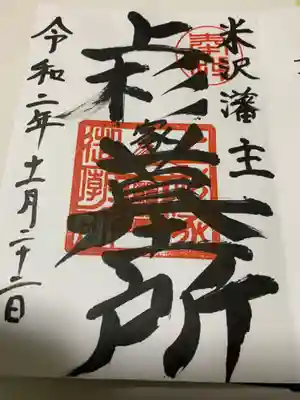 奉拝
米沢藩主
上杉家墓所
令和二年十一月二十二日